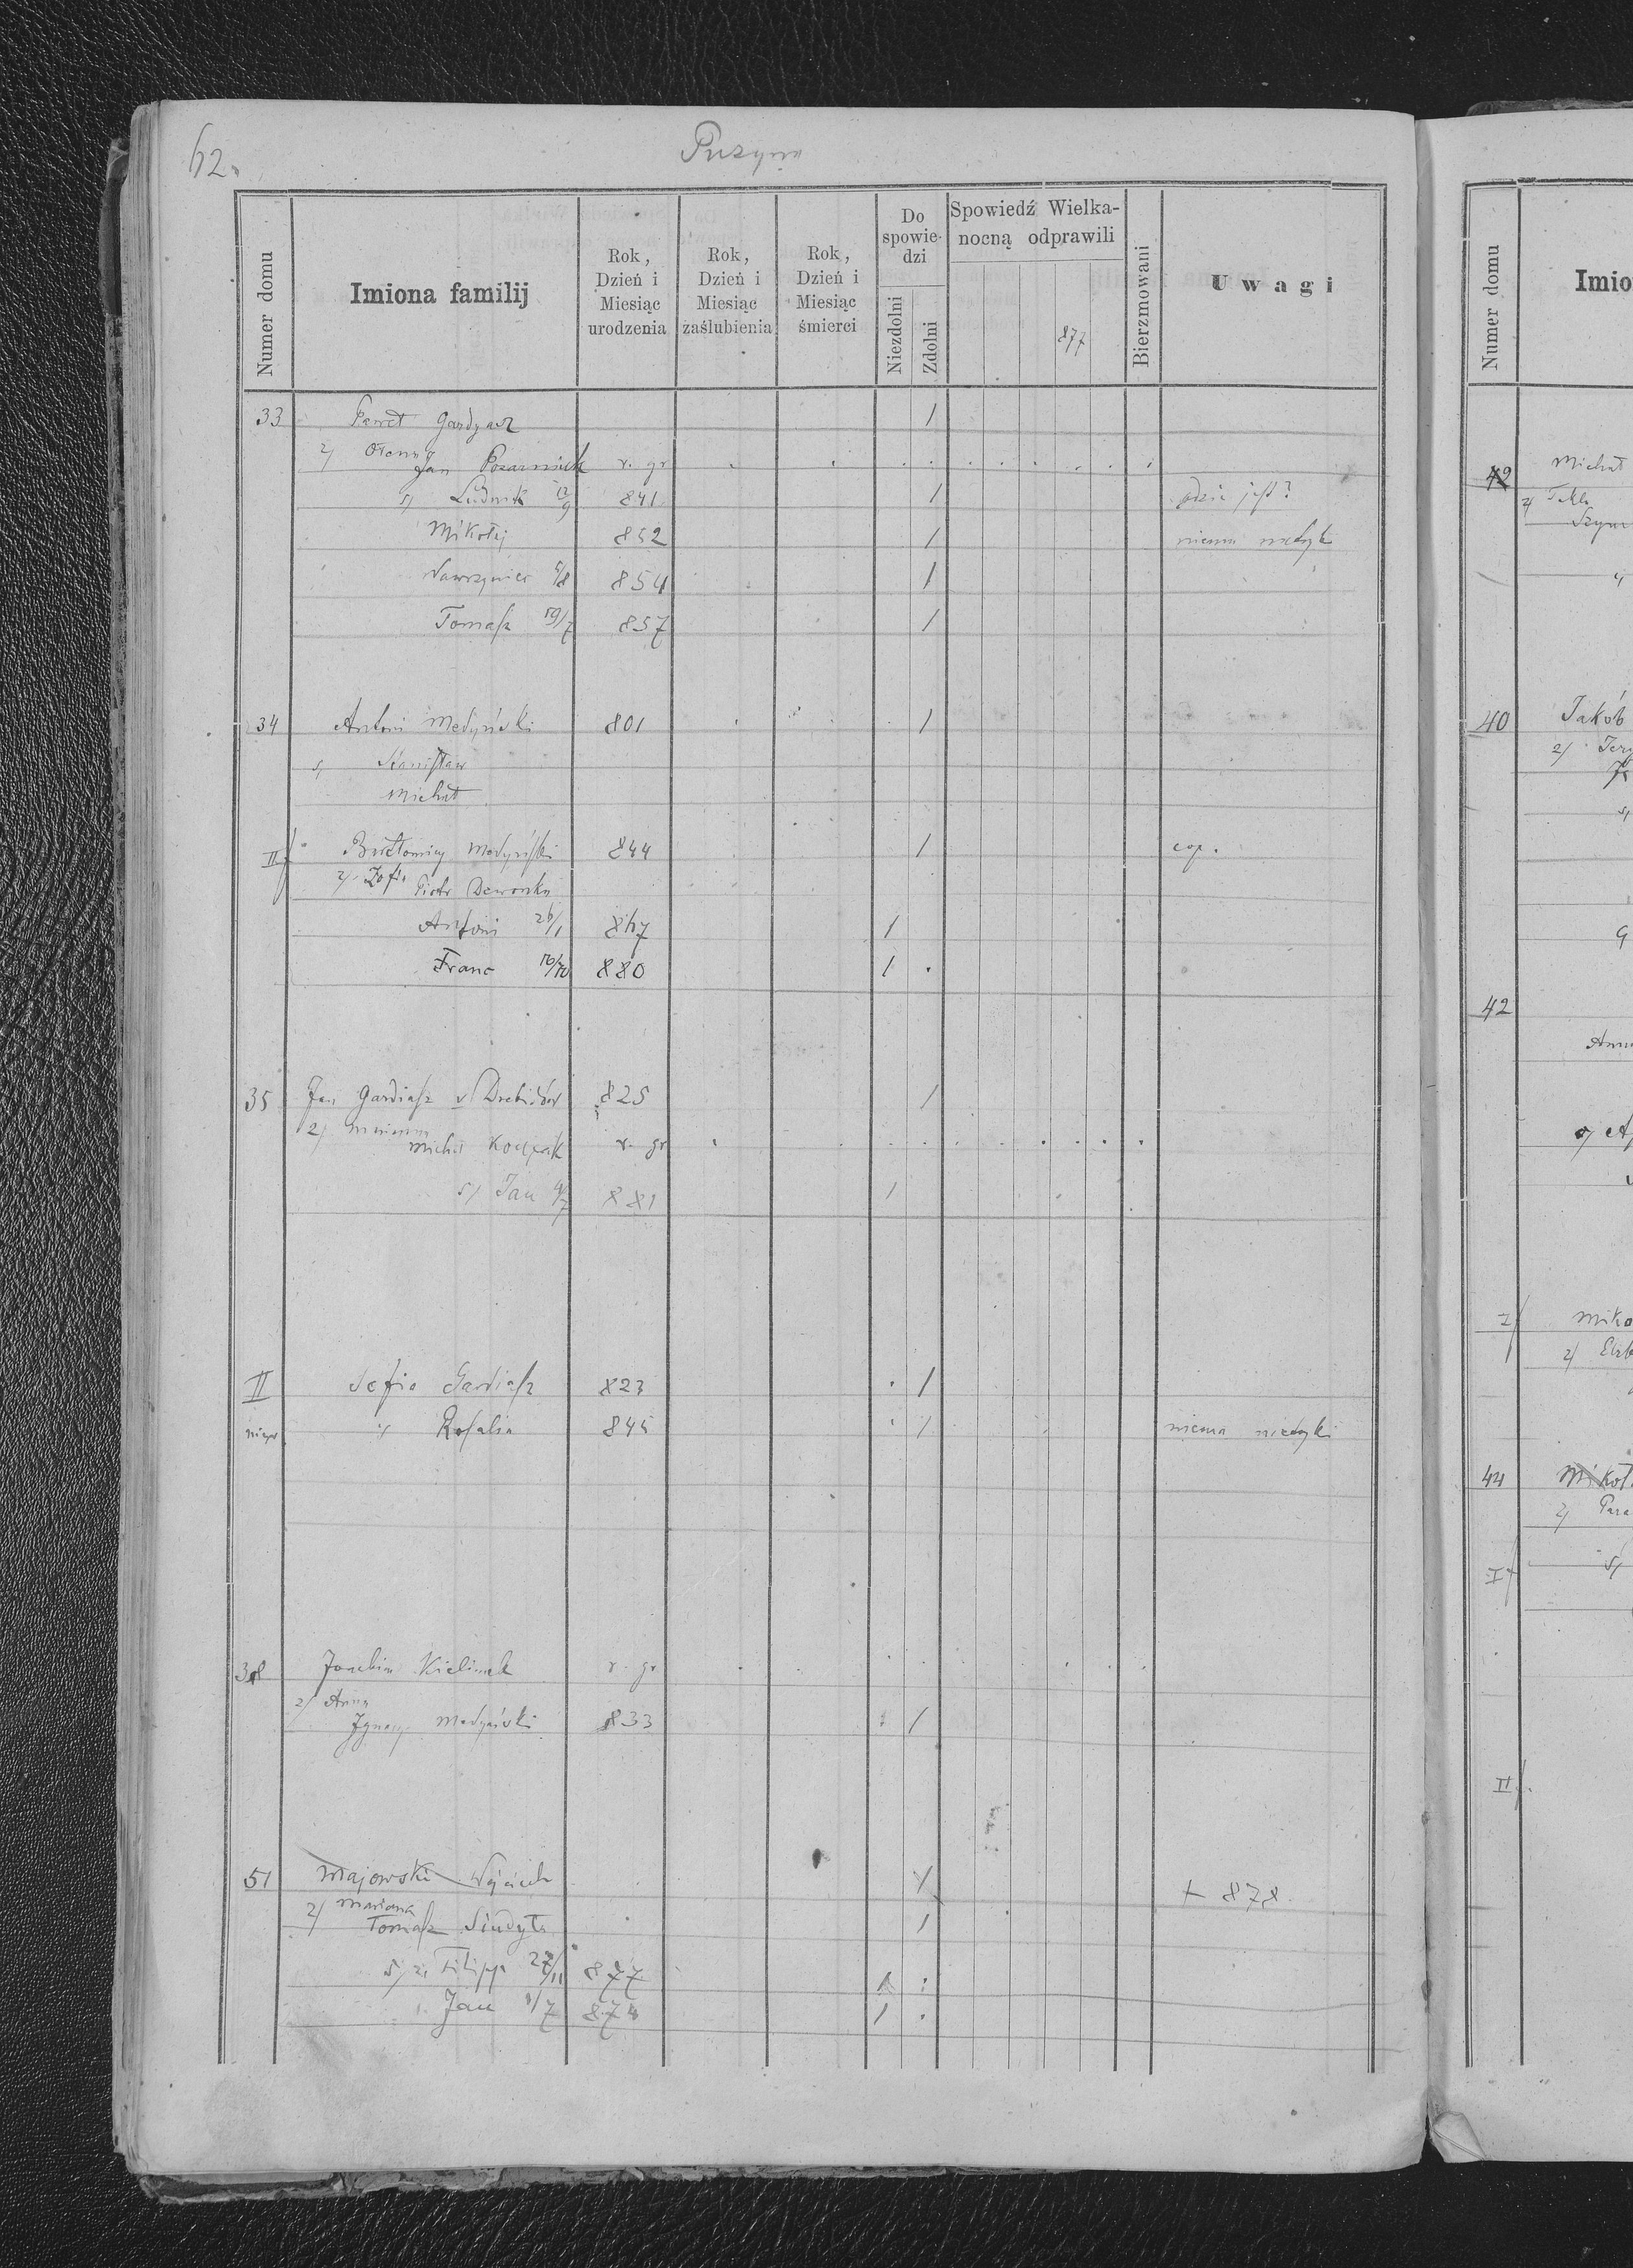 62.
Puzyna
Numer domu
Imiona familij
Rok, Dzień i Miesiąc urodzenia
Rok, Dzień i Miesiąc zaślubienia
Rok, Dzień i Miesiąc śmierci
Do spowiedzi
Niezdolni
Zdolni
Spowiedź Wielkanocną odprawili
877
Bierzmowani
Uwagi
33 Paweł Gardyasz /
2/ Jan r. gr
s/ Ludwik 12/9 841 / gdzie jest?
Mikołaj 852 / niema metryki
Wawrzyniec 5/8 854 /
Tomasz 19/7 857 /
34 Antoni Medyński 801 /
s/ Stanisław
Michał
II/ Bartłomiej Medyński 844 / cop.
2/ Zofia Piotr
Antoni 26/1 867 /
Franc 10/10 880 /
35 Jan Gardiasz v 825 /
2/ Marianna Michał r. gr
s/ Jan 4/7 881 /
II Zofia Gardiasz 823 /
s/ Rosalia 845 / niema metryki
38 Joachim Kielimak r. gr
2/ Anna Ignacy Medyński 833 /
51 Majowski Wojciech / + 878
2/ Mariana Tomasz Siudyła /
s/ 2, Filipp 27/11 877 /
Jan 1/7 874 /
Numer domu
Imio
42 Michał
2/ Tekla
Szym
40 Jakób
2/
s/
42
s/
I/ Miko
2/ Elżb
44 Mikoł
2/ Para
I/ s/
II/